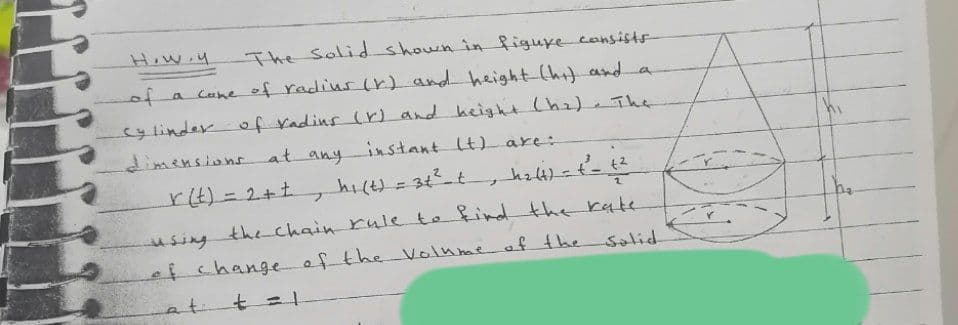 H.W.4 The Solid shown in figure consists
of a cone of radius (r) and height (h1) and a
cylinder of radius (r) and height (h2). The
dimensions at any instant (t) are:
r(t) = 2+t , h1(t) = 3t²-t , h2(t) = t³- t²/2
using the chain rule to find the rate
of change of the Volume of the Solid
at t = 1
h1
r
h2
r